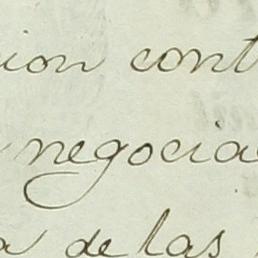 ion cont
negocia
a de las